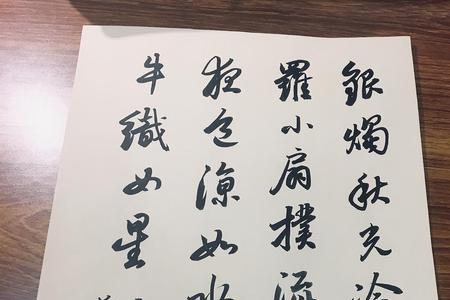 銀燭秋光冷
羅小扇撲流
夜色涼如水
牛織女星